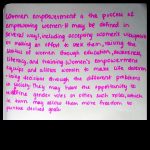 Women empowerment is the process of
empowering women. It may be defined in
several ways, including accepting women's viewpoints
or making an effort to seek them, raising the
status of women through education, awareness,
literacy, and training. Women's empowerment
equips and allows women to make life determi-
ning decisions through the different problems
in society. They may have the opportunity to
redefine gender roles or other such roles, which
in turn may allow them more freedom to
pursue desired goals